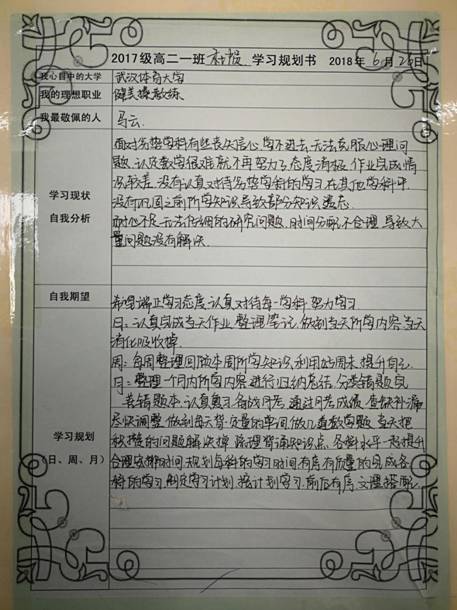 2017级高二一班 学习规划书 2018年6月26日
我心目中的大学 武汉体育大学
我的理想职业 健美操教练
我最敬佩的人 马云
学习现状
自我分析
面对劣势学科有些丧失信心,学不进去,无法克服心理问
题,认为数学很难就不再努力了,态度消极,作业完成情
况较差,没有认真对待劣势学科的学习,在其他学科中,
没有巩固之前所学知识导致部分知识遗忘
耐心不足,无法仔细的研究问题,时间分配不合理,导致大
量问题没有解决.
自我期望 希望端正学习态度,认真对待每一学科,努力学习
学习规划
(日、周、月)
日:认真完成当天作业,整理笔记,做到当天所学内容当天
消化吸收掉.
周:每周整理回顾本周所学知识,利用好周末,提升自己.
月:整理一个月内所学内容,进行归纳总结,分类错题完
善错题本,认真复习,备战月考,通过月考成绩,查缺补漏
尽快调整,做到每天背一定量的单词,做几道数学题,当天把
积攒的问题解决掉,梳理背诵知识点,各科水平一起提升
合理安排时间,规划每科的学习时间,有序有质量的完成各
科的学习,制定学习计划,按计划学习,前后有序,文理搭配